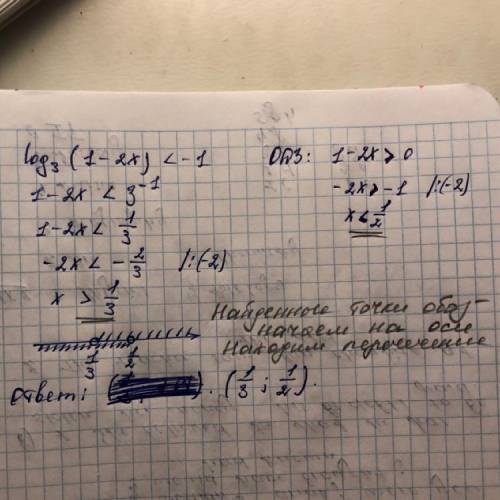 log₃(1-2x) < -1
1-2x < 3⁻¹
1-2x < 1/3
-2x < -2/3 /:(-2)
x > 1/3
ОДЗ: 1-2x > 0
-2x > -1 /:(-2)
x < 1/2
Найденные точки обоз-
начаем на оси
Находим перечение
1/3 1/2
Ответ: (1/3 ; 1/2).